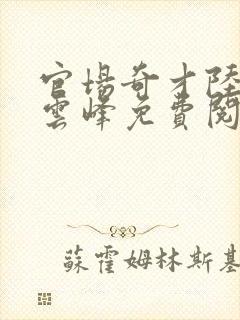 官場奇才陸
雲峰免費閱
蘇霍姆林斯基